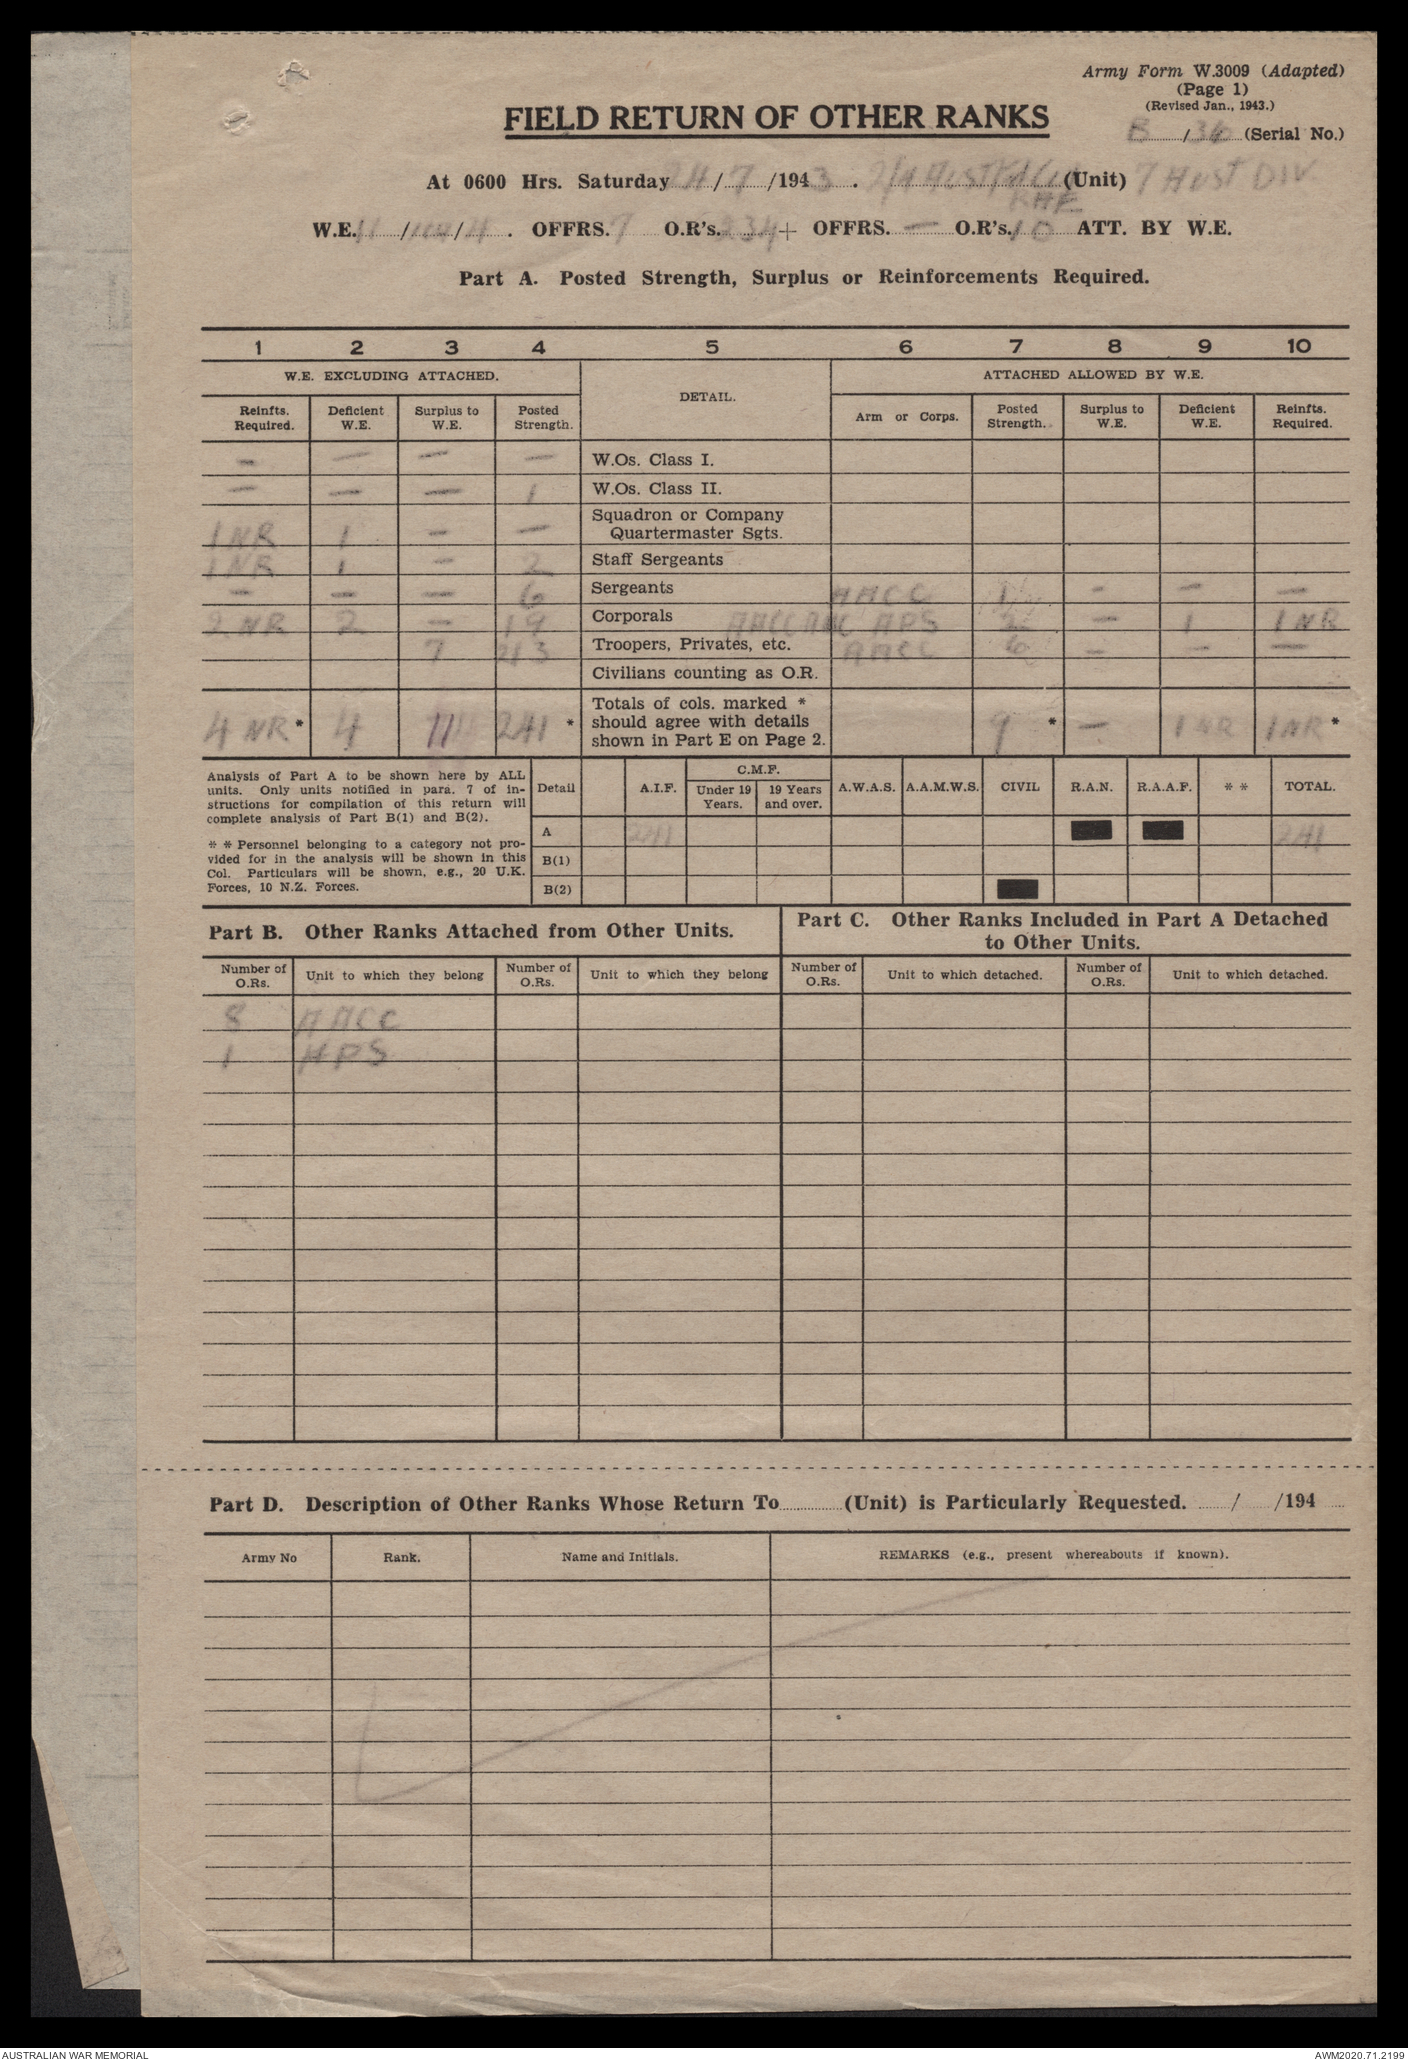 Army Form W.3009 (Adapted)
(Page 1)
(Revised Jan., 1943.)
FIELD RETURN OF OTHER RANKS
B/36 (Serial No.)
At 0600 Hrs. Saturday 24/7/1943. 2/4 Aust (Unit) 7 Aust DIV.
RAE
W.E. 11/ /4. OFFRS. 7 O.R's. 234 + OFFRS. — O.R's. 10 ATT. BY W.E.
Part A. Posted Strength, Surplus or Reinforcements Required.
1 2 3 4 5 6 7 8 9 10
W.E. EXCLUDING ATTACHED. DETAIL. ATTACHED ALLOWED BY W.E.
Reinfts. Required. Deficient W.E. Surplus to W.E. Posted Strength. Arm or Corps. Posted Strength. Surplus to W.E. Deficient W.E. Reinfts. Required.
— — — — W.Os. Class I.
— — — 1 W.Os. Class II.
1 NR 1 — — Squadron or Company Quartermaster Sgts.
1 NR 1 — 2 Staff Sergeants
— — — 6 Sergeants AACC 1 — — —
2 NR 2 — 19 Corporals AACC APS 2 — 1 1 NR
7 213 Troopers, Privates, etc. AACC 6 — — —
Civilians counting as O.R.
4 NR * 4 11 241 * Totals of cols. marked * should agree with details shown in Part E on Page 2. 9 * — 1 NR 1 NR *
Analysis of Part A to be shown here by ALL
units. Only units notified in para. 7 of in-
structions for compilation of this return will
complete analysis of Part B(1) and B(2).
* * Personnel belonging to a category not pro-
vided for in the analysis will be shown in this
Col. Particulars will be shown, e.g., 20 U.K.
Forces, 10 N.Z. Forces.
Detail A.I.F. C.M.F. Under 19 Years. 19 Years and over. A.W.A.S. A.A.M.W.S. CIVIL R.A.N. R.A.A.F. * * TOTAL.
A 241 241
B(1)
B(2)
Part B. Other Ranks Attached from Other Units.
Part C. Other Ranks Included in Part A Detached
to Other Units.
Number of O.Rs. Unit to which they belong Number of O.Rs. Unit to which they belong Number of O.Rs. Unit to which detached. Number of O.Rs. Unit to which detached.
8 AACC
1 APS
Part D. Description of Other Ranks Whose Return To (Unit) is Particularly Requested. / /194
Army No Rank. Name and Initials. REMARKS (e.g., present whereabouts if known).
AUSTRALIAN WAR MEMORIAL
AWM2020.71.2199